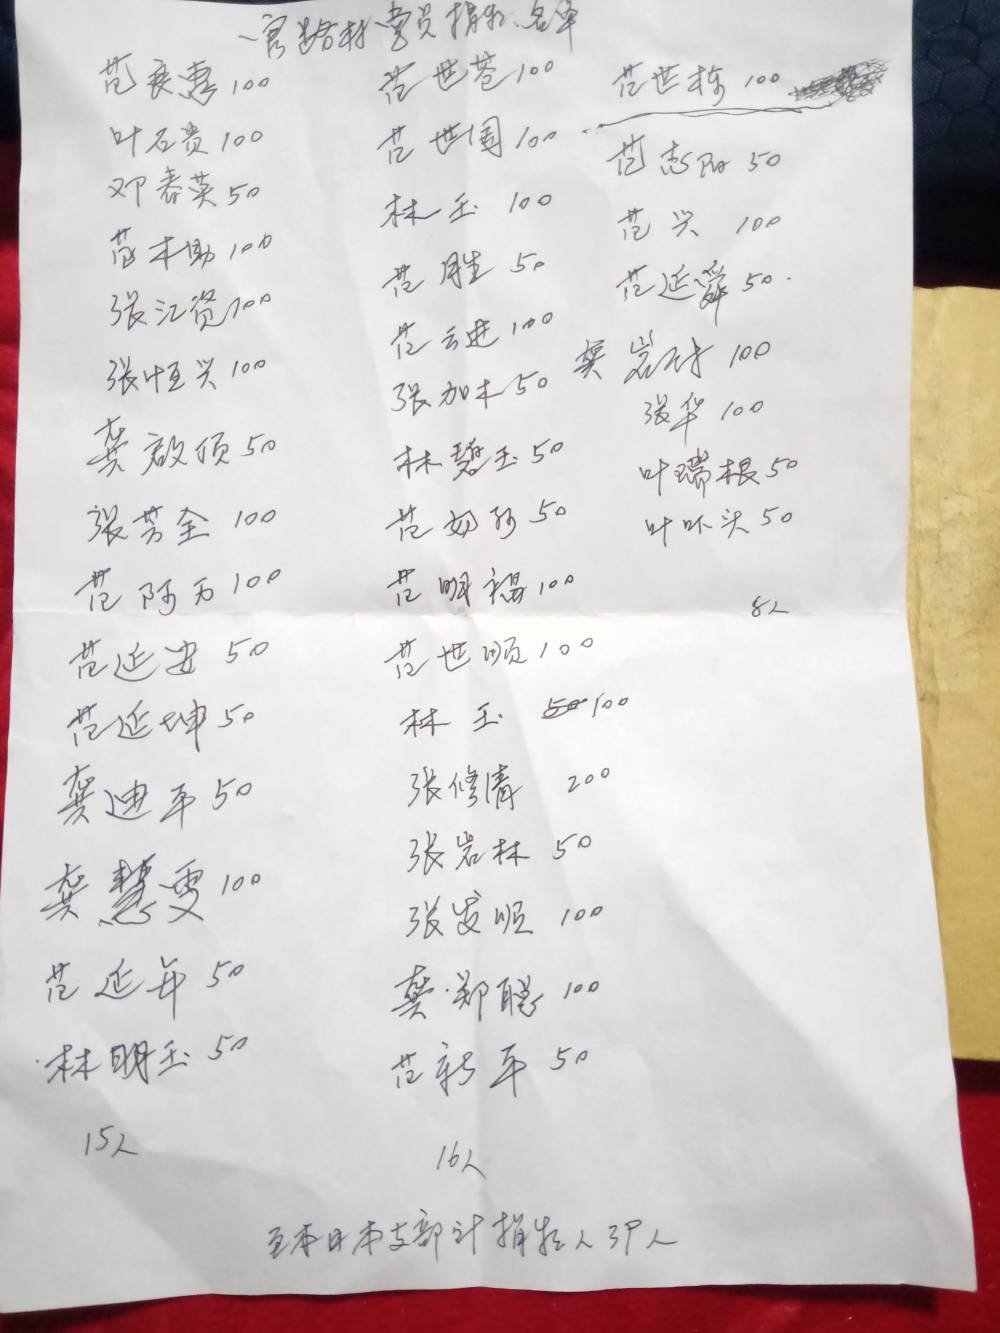 官路村党员捐款名单
范良惠 100
叶石贵 100
邓春英 50
范木助 100
张江贤 100
张恒兴 100
龚啟顷 50
张芳全 100
范阿万 100
范延安 50
范延坤 50
龚迪平 50
龚慧雯 100
范延年 50
林明玉 50
15人
范世苍 100
范世国 100
林玉 100
范胜 50
范云进 100
张加木 50
林碧玉 50
范 50
范明禄 100
范世顺 100
林玉 100
张修清 200
张岩林 50
张发顺 100
龚郑聪 100
范新平 50
16人
范世栋 100
范志阳 50
范兴 100
范延舜 50
龚岩材 100
张华 100
叶瑞根 50
叶吓头 50
8人
至本日本支部计捐款人39人